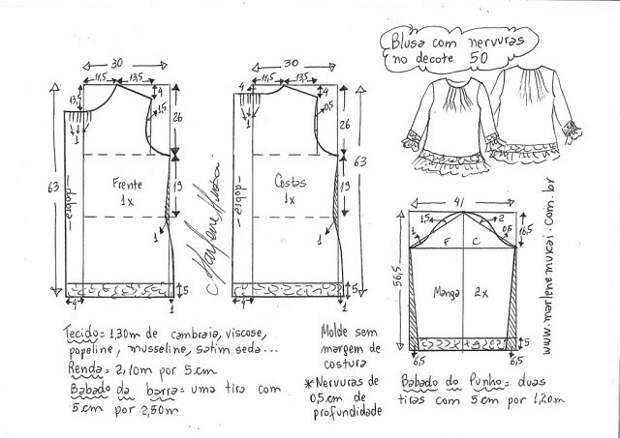 Blusa com nervuras
no decote 50
30
11,5 13,5
13,5
4
1,5
1
26
63
19
dobra
Frente
1x
1
5
4
1
30
11,5 13,5
4
4
0,5
1
26
63
19
dobra
Costas
1x
1
5
4
1
Marlene Mukai
41
1,5
2
1
0,5
16,5
F C
56,5
Manga 2x
5
6,5 6,5
www.marlenemukai.com.br
Tecido = 1,30m de cambraia, viscose,
popeline, musseline, satim seda...
Renda = 2,10m por 5cm
Babado da barra = uma tira com
5cm por 2,50m
Molde sem
margem de
costura
*Nervuras de
0,5cm de
profundidade
Babado do Punho = duas
tiras com 5cm por 1,20m